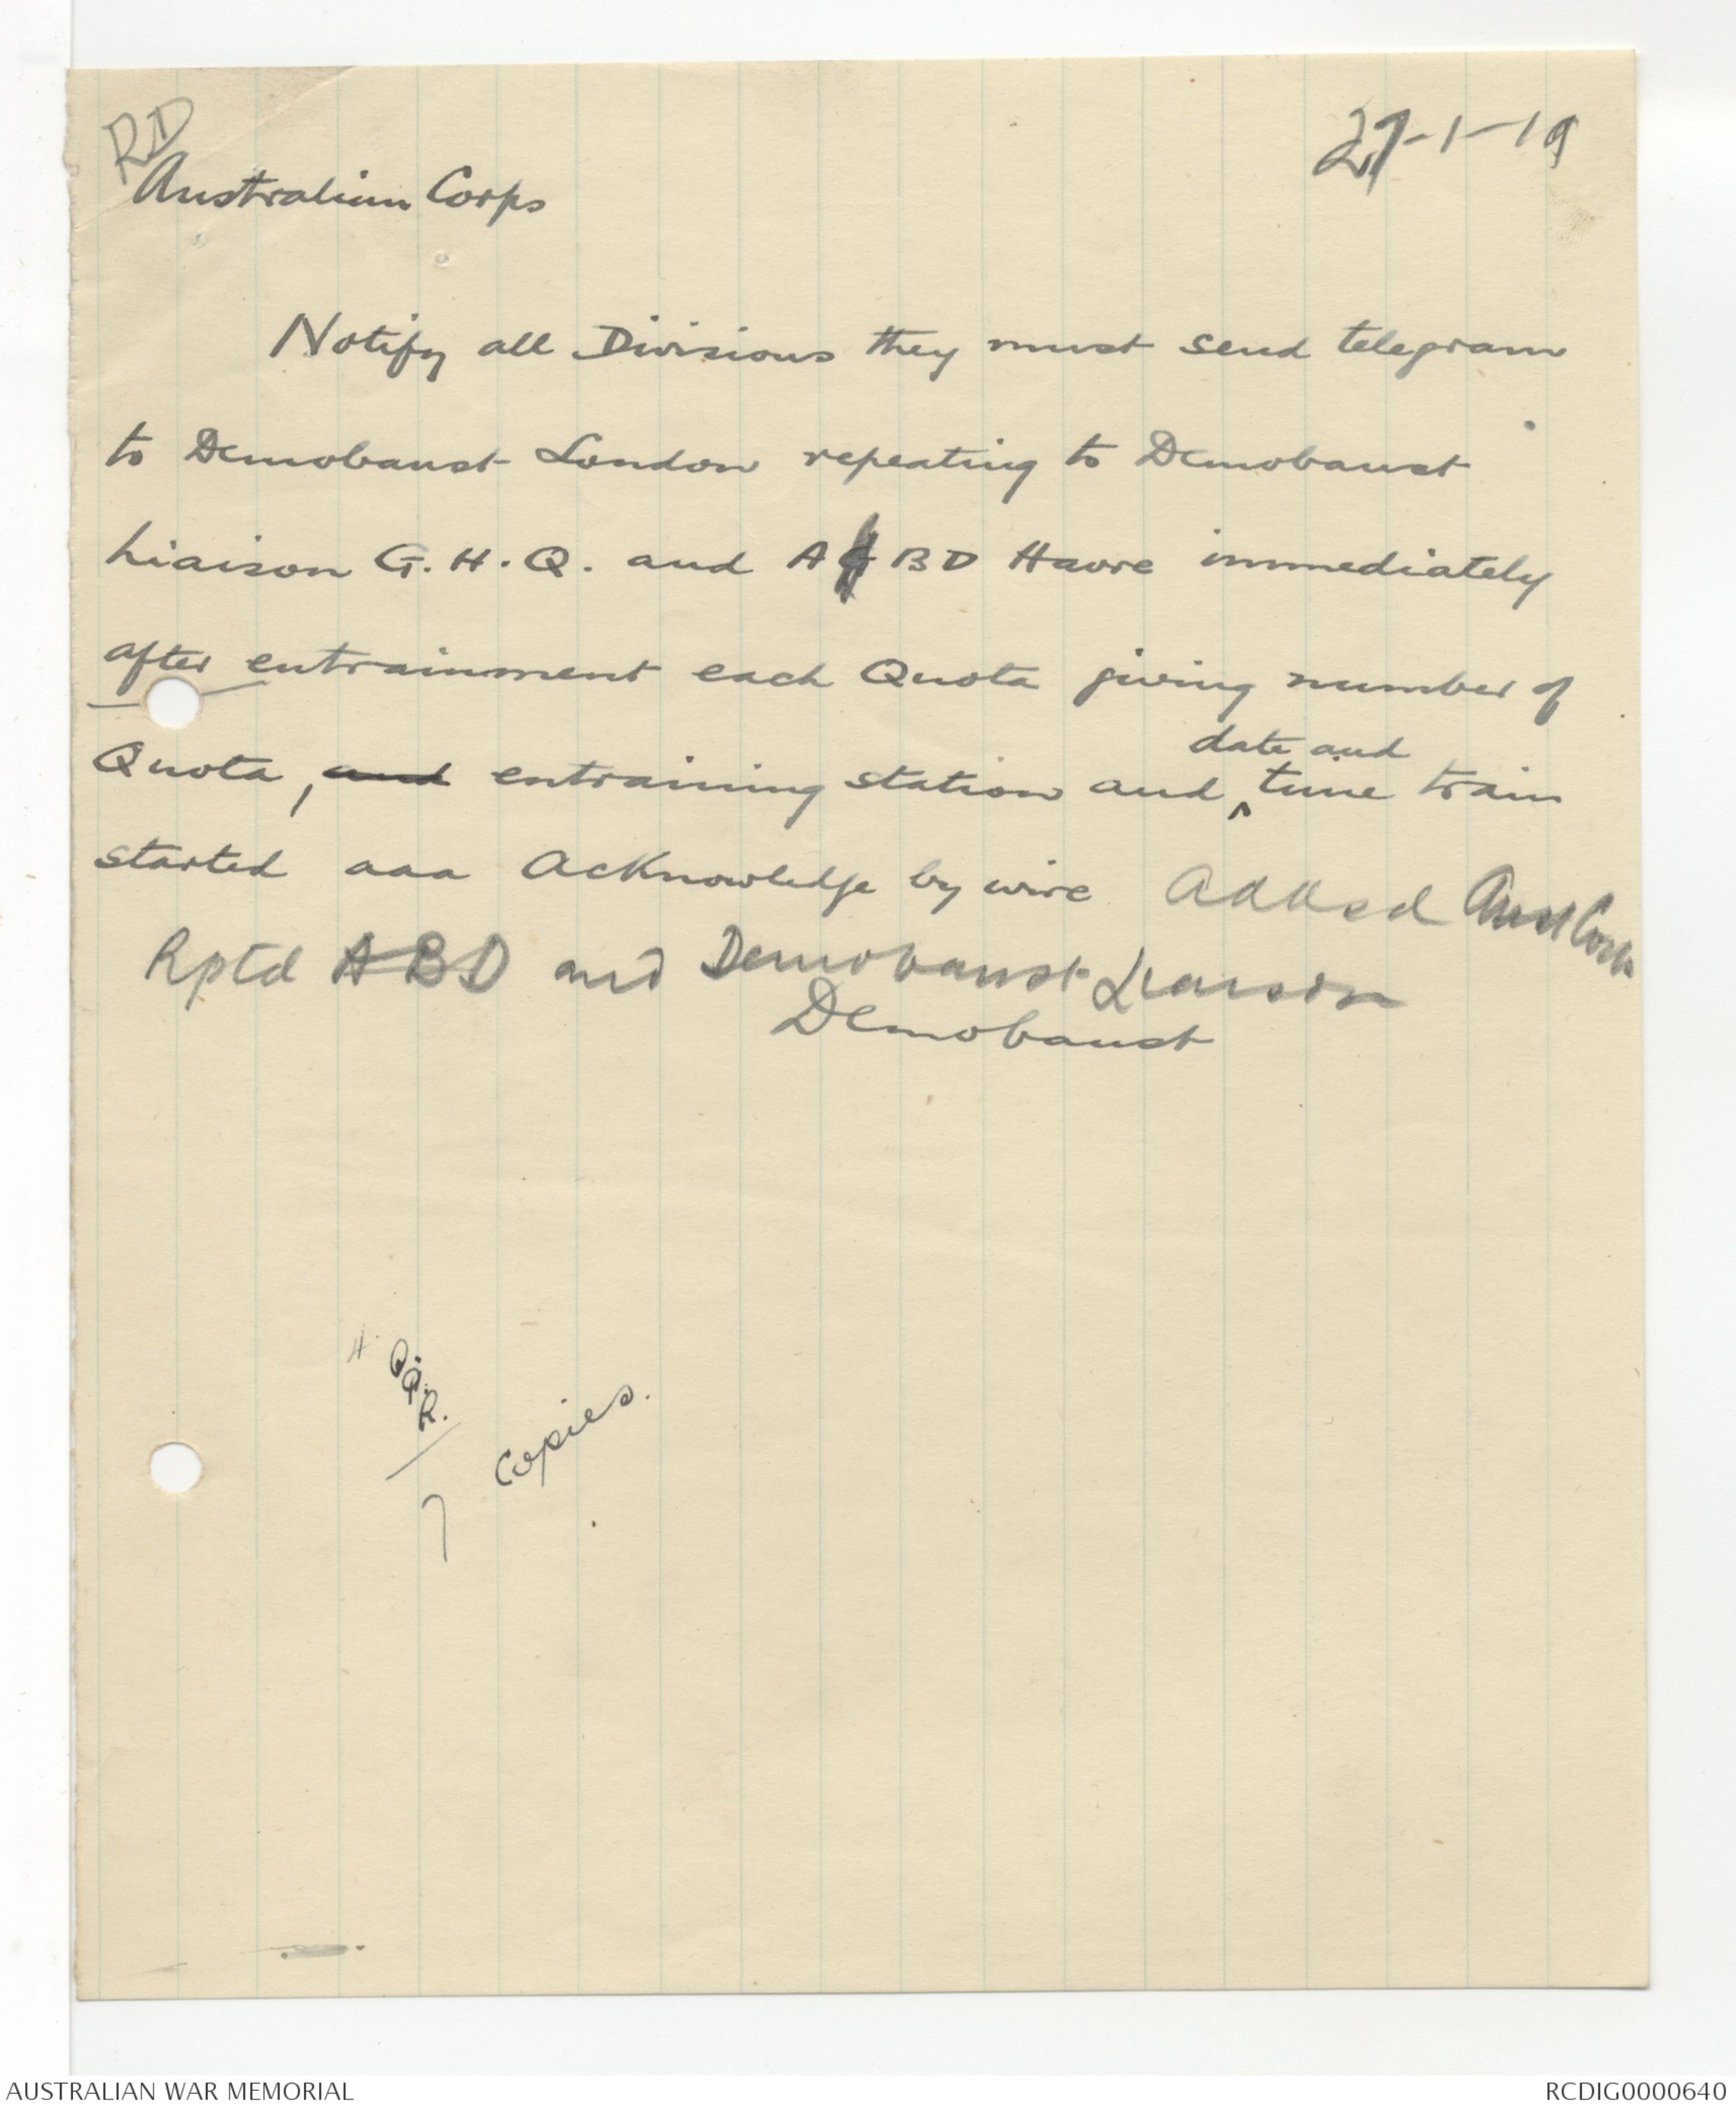 RD
27-1-19
Australian Corps
Notify all Divisions they must send telegram
to Demobaust London repeating to Demobaust
Liaison G.H.Q. and A BD Havre immediately
after entrainment each Quota giving number of
date and
Quota, and entraining station and time train
started aaa Acknowledge by wire Addsed Aust Corps
Rptd ABD and Demobaust Liaison
Demobaust
R.
7 Copies.
AUSTRALIAN WAR MEMORIAL
RCDIG0000640